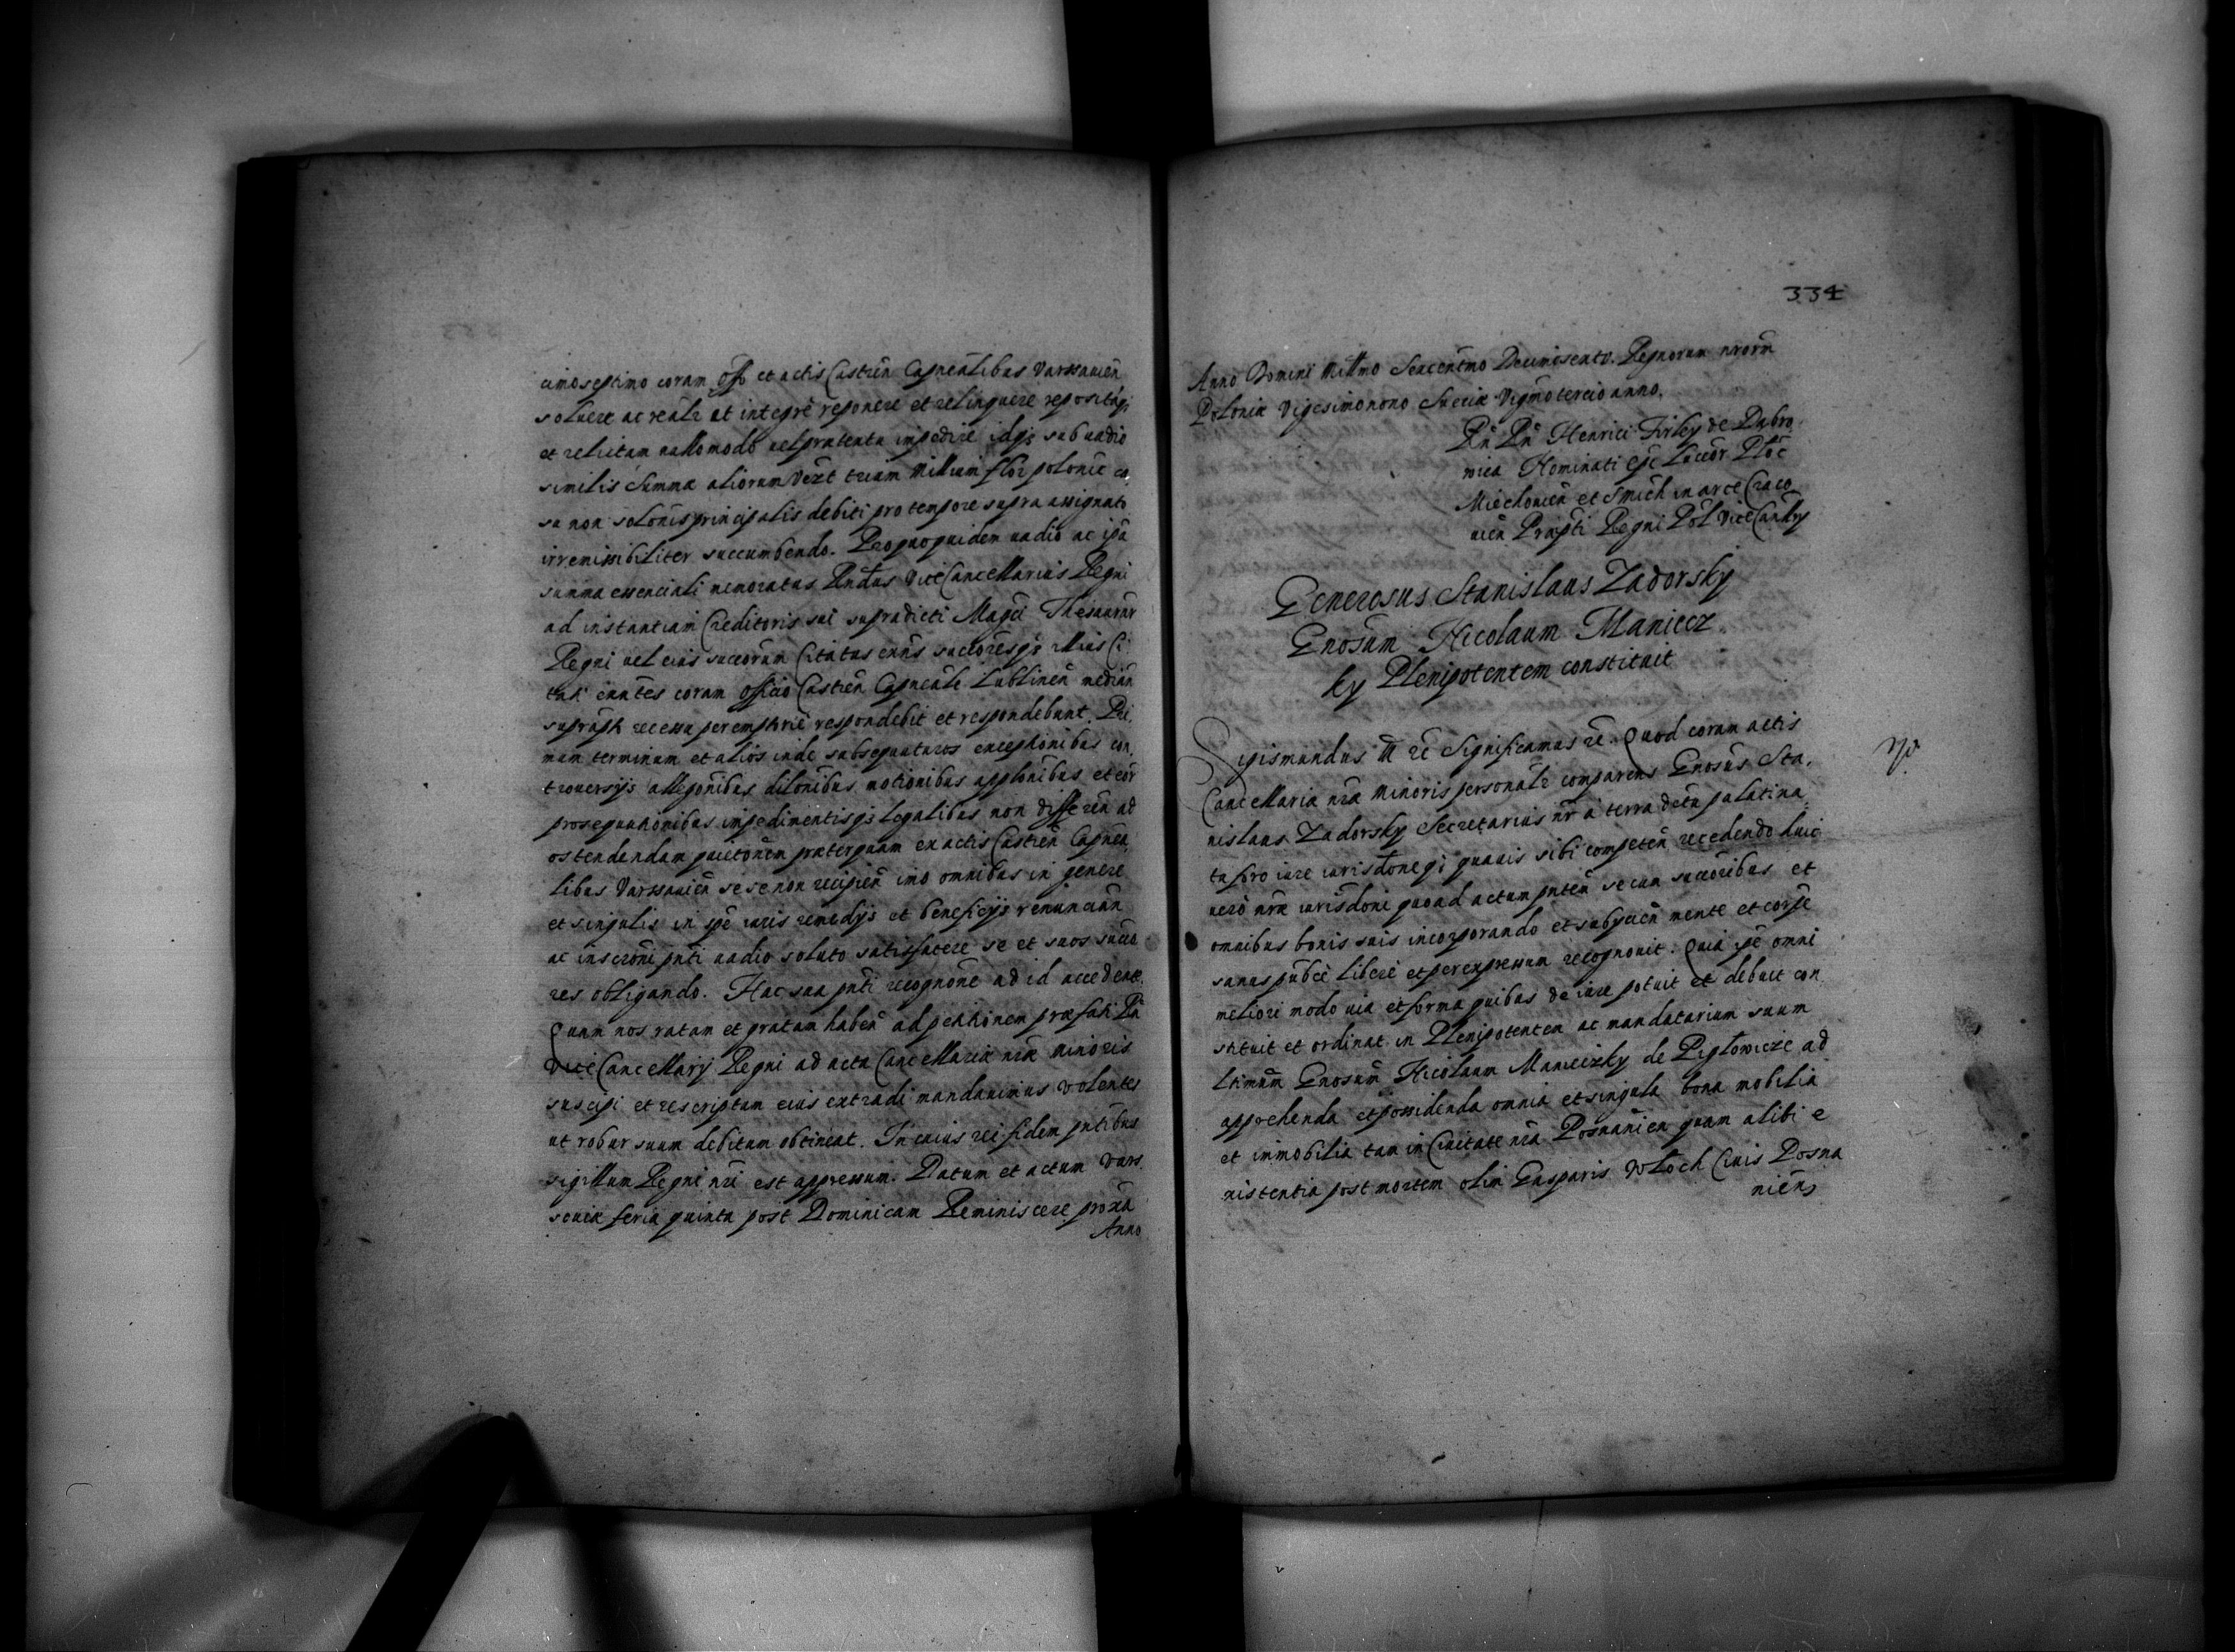 cimoseptimo coram Offo et actis Castren Capnealibus Varssavien
soluere ac realr et integre reponere et relinquere repositaqz
et relictam nullo modo vel praetextu impedire idqz sub vadio
similis summae aliorum Vdelt trium Millium flor polonic ca
su non solonis principalis debiti pro tempore supra assignato
irremissibiliter succumbendo. Pro quo quidem vadio ac ipa
summa essenciali memoratus Rndus ViceCancellarius Regni
ad instantiam Creditoris sui supradicti Magci Thesaurar
Regni vel eius succorum Citatus enns succoresqz illius Ci
tati enntes coram officio Castren Capneale Lublinen median
supraph recessu peremptorie respondebit et respondebunt. Pri
mum terminum et alios inde subsequuturos exceptionibus con
troversys allegonibus dilonibus motionibus applonibus et eor
prosequutionibus impedimentisqz legalibus non differen ad
ostendendam quietonem praeterquam ex actis Castren Capnea
libus Varssavien sese non recipien imo omnibus in genere
et singulis in spe iuris remedys et beneficys renuncian
ac inscroni pnti vadio soluto satisfacere se et suos succo
res obligando. Hac sua pnti recognone ad id acceden
Quam nos ratam et gratam haben ad petitionem praefati Rn
ViceCancellary Regni ad acta Cancellariae nrae Minoris
suscipi et rescriptum eius extradi mandavimus volentes
ut robur suum debitum obtineat. In cuius rei fidem pntibus
sigillum Regni nri est appressum. Datum et actum Vars
soviae feria quinta post Dominicam Reminiscere proxa
Anno
334
Anno Domini Millmo Sexcentmo Decimosexto. Regnorum nrorm
Poloniae Vigesimonono Sueciae Vigmotercio anno.
Rn Rn Henrici Firley de Dabro
wica Nominati Epi Luceor Ploc
Miechovien et S Mich in arce Craco
vien Praepti Regni Pol ViceCanlry
Generosus Stanislaus Zadorsky
Gnosum Nicolaum Maniecz
ky Plenipotentem constituit
Sigismundus III rc Significamus rc. Quod coram actis
Cancellariae nrae Minoris personalr comparens Gnosus Sta
nislaus Zadorsky Secretarius nr a terra dctu palatina
tu foro iure iurisdoneqz quavis sibi competen recedendo huic
vero nrae iurisdoni quoad actum pnten se cum succoribus et
omnibus bonis suis incorporando et subycien mente et corpe
sanus pubce libere et per expressum recognovit. Quia ipe omni
meliori modo via et forma quibus de iure potuit et debuit con
stituit et ordinat in Plenipotentem ac mandatarium suum
ltimum Gnosum Nicolaum Manieczky de Piglowicze ad
apprehenda et possidenda omnia et singula bona mobilia
et immobilia tam in Civitate nra Posnanien quam alibi e
xistentia post mortem olim Gasparis Wloch Civis Posna
nien,